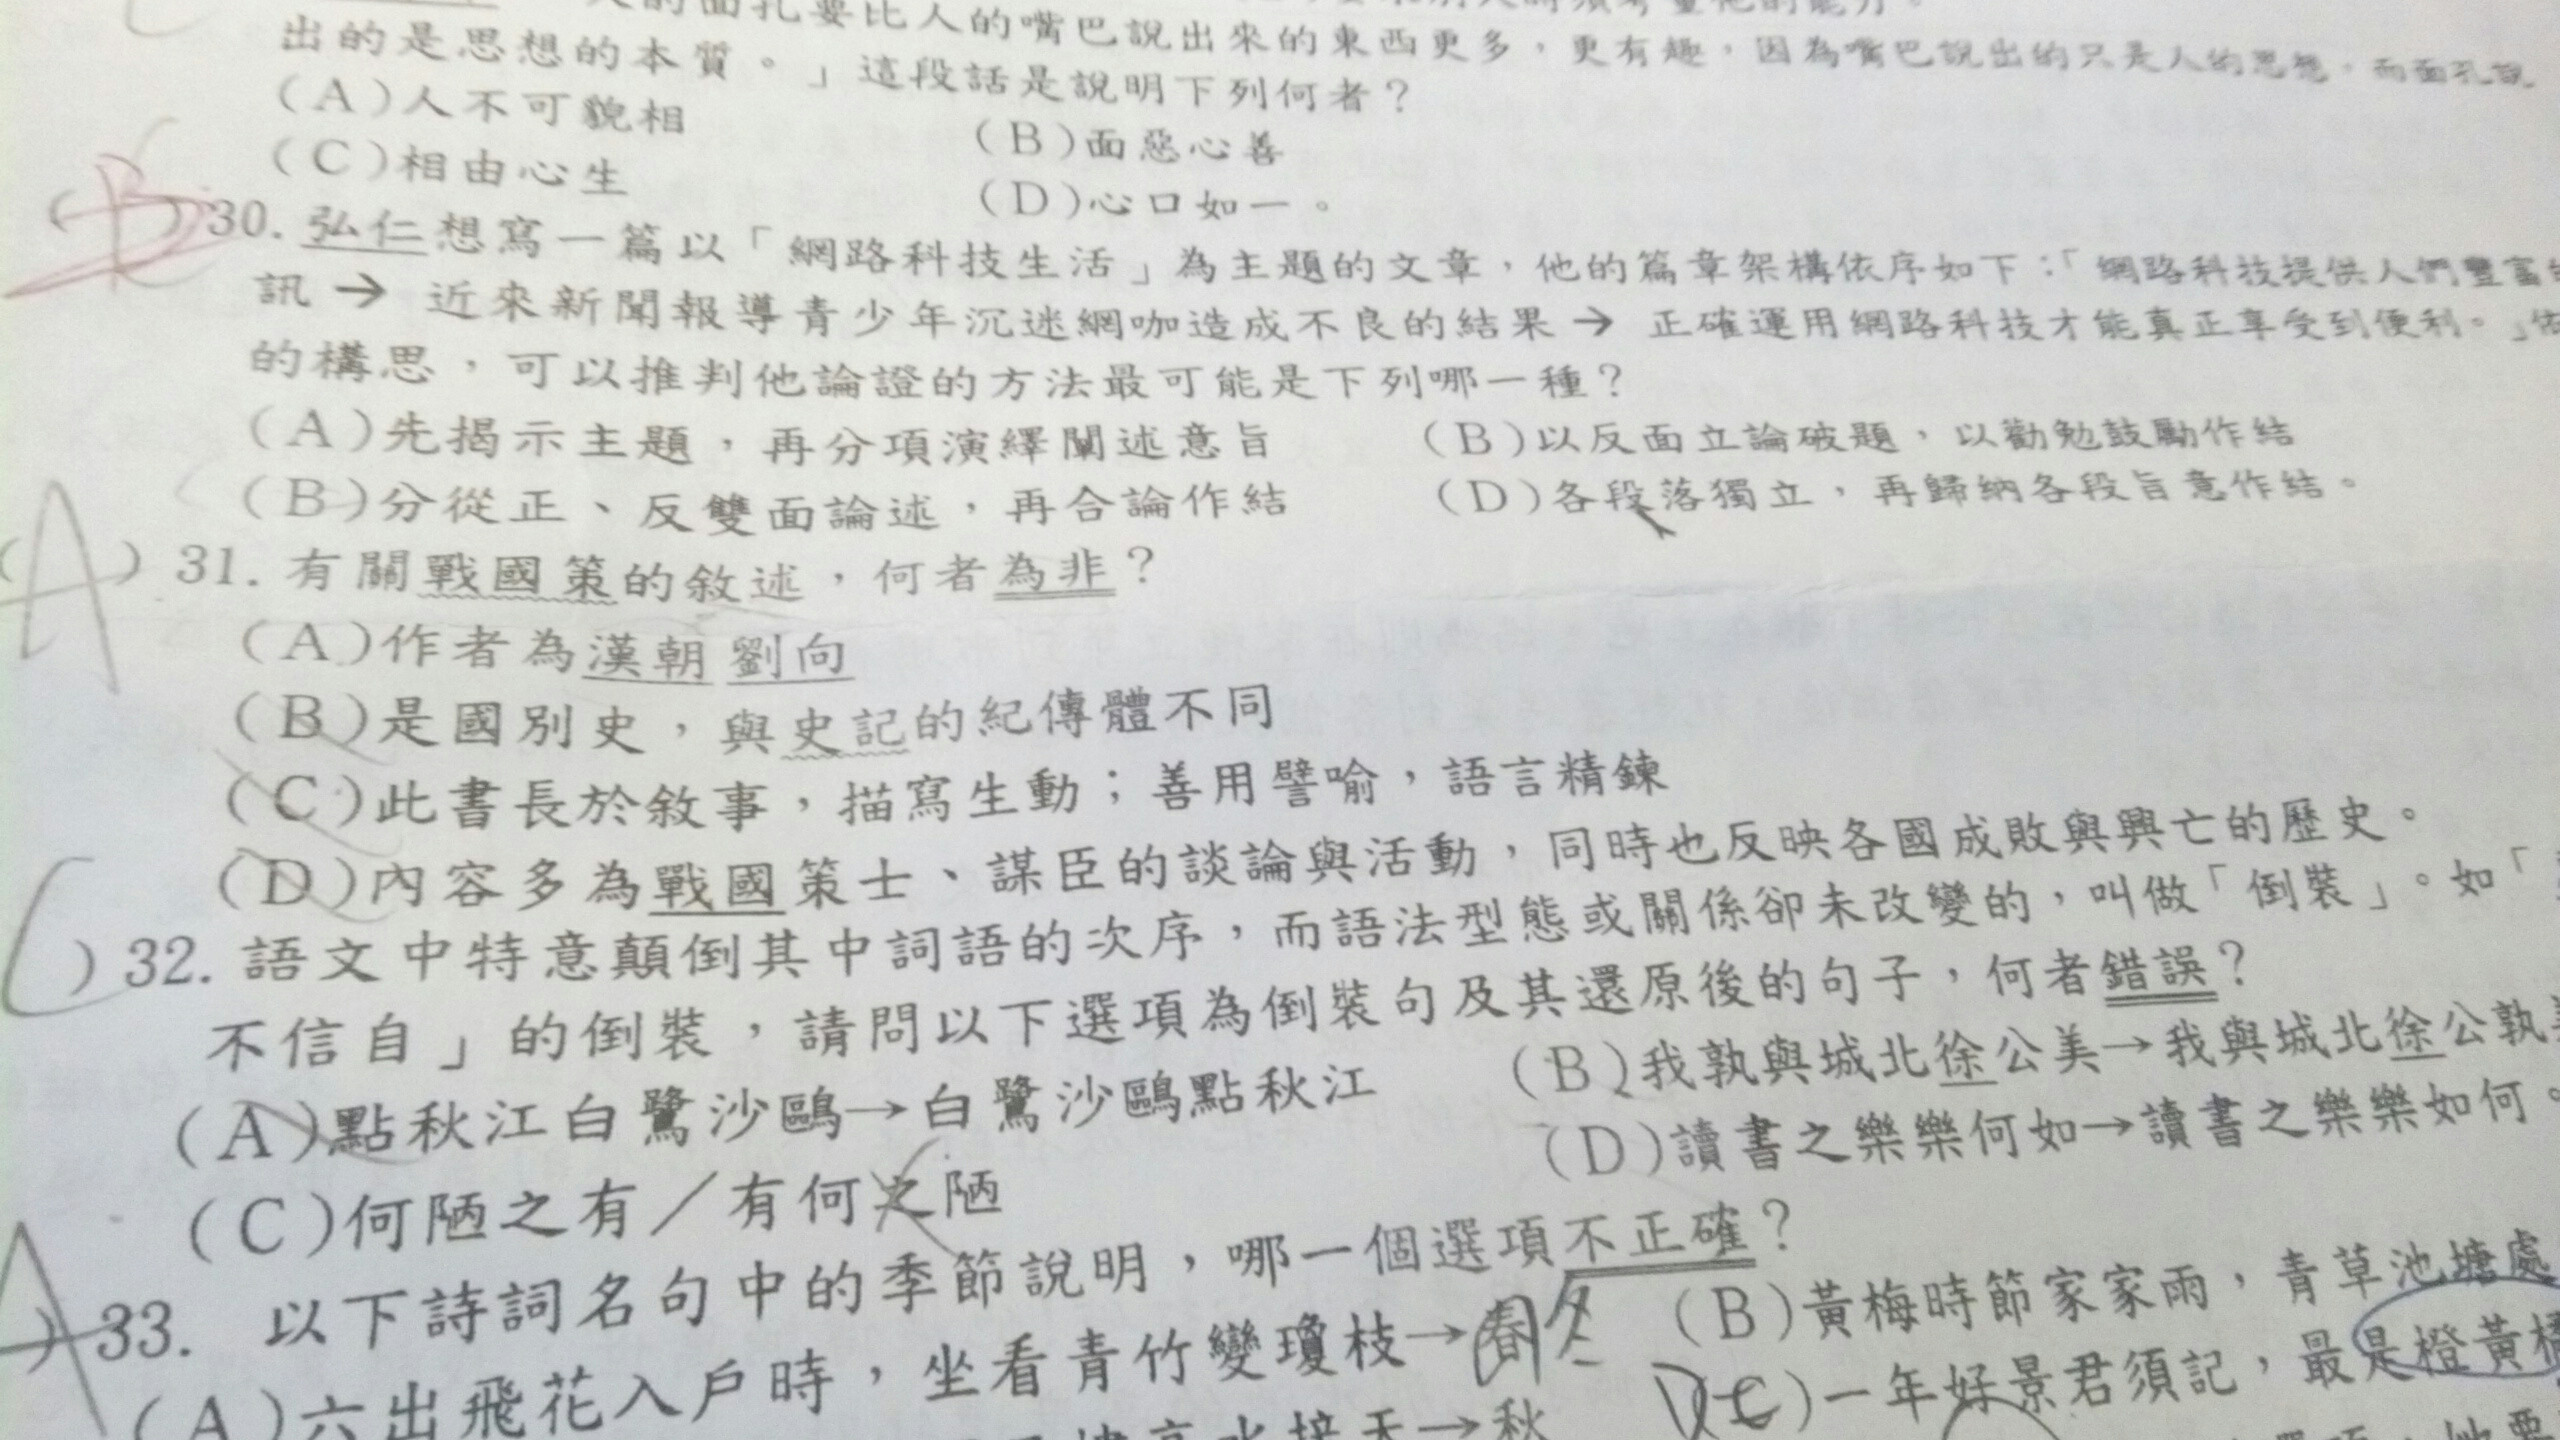 人的面孔要比人的嘴巴說出來的東西更多，更有趣，因為嘴巴說出的只是人的思想，而面孔說
出的是思想的本質。」這段話是說明下列何者？
(A)人不可貌相
(B)面惡心善
(C)相由心生
(D)心口如一。
(B)30. 弘仁想寫一篇以「網路科技生活」為主題的文章，他的篇章架構依序如下：「網路科技提供人們豐富
訊→ 近來新聞報導青少年沉迷網咖造成不良的結果→ 正確運用網路科技才能真正享受到便利。」依
的構思，可以推判他論證的方法最可能是下列哪一種？
(A)先揭示主題，再分項演繹闡述意旨
(B)以反面立論破題，以勸勉鼓勵作結
(B)分從正、反雙面論述，再合論作結
(D)各段落獨立，再歸納各段旨意作結。
(A)31. 有關戰國策的敘述，何者為非？
(A)作者為漢朝劉向
(B)是國別史，與史記的紀傳體不同
(C)此書長於敘事，描寫生動；善用譬喻，語言精鍊
(D)內容多為戰國策士、謀臣的談論與活動，同時也反映各國成敗與興亡的歷史。
(C)32. 語文中特意顛倒其中詞語的次序，而語法型態或關係卻未改變的，叫做「倒裝」。如「
不信自」的倒裝，請問以下選項為倒裝句及其還原後的句子，何者錯誤？
(A)點秋江白鷺沙鷗→白鷺沙鷗點秋江
(B)我孰與城北徐公美→我與城北徐公孰
(C)何陋之有／有何之陋
(D)讀書之樂樂何如→讀書之樂樂如何。
(A)33. 以下詩詞名句中的季節說明，哪一個選項不正確？
(A)六出飛花入戶時，坐看青竹變瓊枝→春 冬
(B)黃梅時節家家雨，青草池塘處
→秋
(C)一年好景君須記，最是橙黃橘